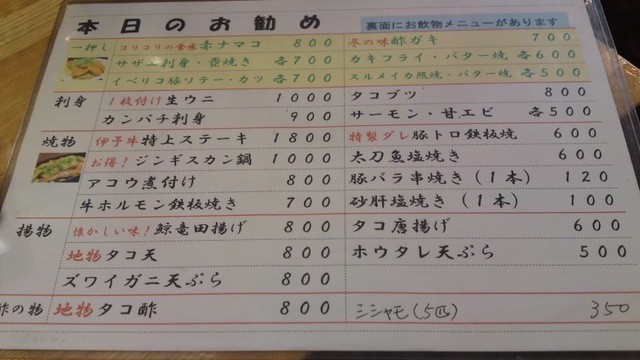 本日のお勧め
裏面にお飲物メニューがあります
一押し コリコリの食感 赤ナマコ 800
冬の味 酢ガキ 700
サザエ刺身・壺焼き 各700
カキフライ・バター焼 各600
イベリコ豚ソテー・カツ 各700
スルメイカ照焼・バター焼 各500
刺身 1枚付け 生ウニ 1000
タコブツ 800
カンパチ刺身 900
サーモン・甘エビ 各500
焼物 伊予牛 特上ステーキ 1800
特製ダレ 豚トロ鉄板焼 600
お得！ジンギスカン鍋 1000
太刀魚塩焼き 600
アコウ煮付け 800
豚バラ串焼き（1本） 120
牛ホルモン鉄板焼き 700
砂肝塩焼き（1本） 100
揚物 懐かしい味！鯨竜田揚げ 800
タコ唐揚げ 600
地物 タコ天 800
ホウタレ天ぷら 500
ズワイガニ天ぷら 800
酢の物 地物 タコ酢 800
シシャモ(5匹) 350